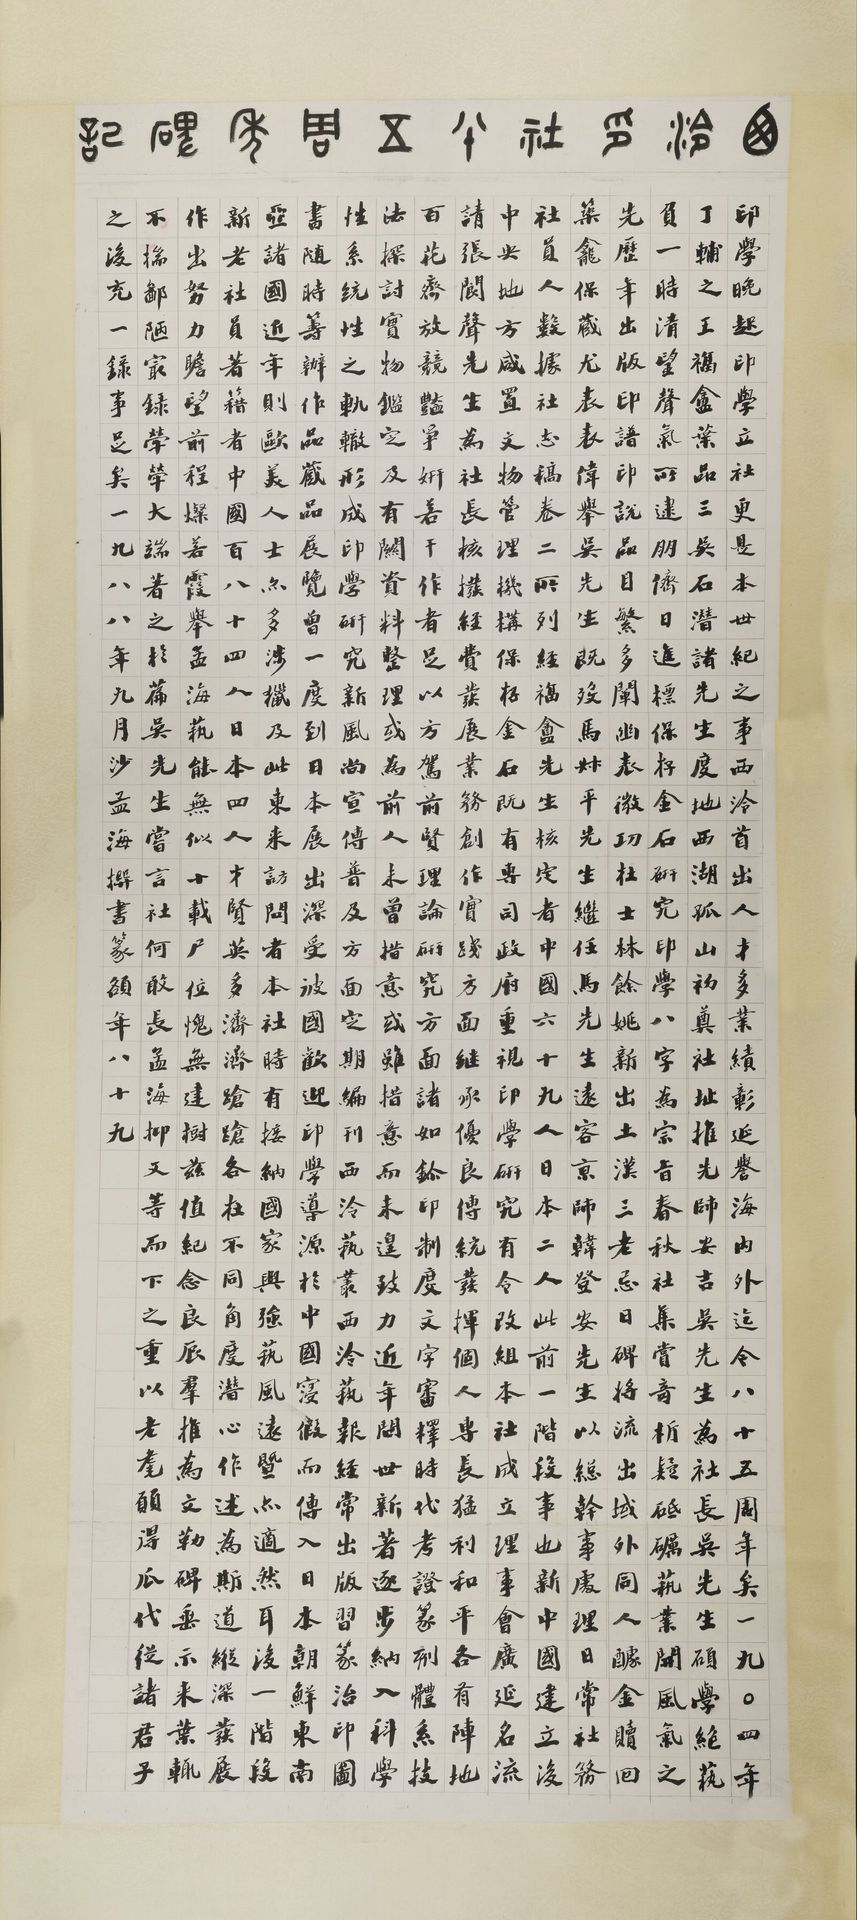 西泠印社八十五周年碑記
印學晚起印學立社更是本世紀之事西泠首出人才多業績彰延譽海內外迄今八十五周年矣一九〇四年
丁輔之王福盦葉品三吳石潛諸先生度地西湖孤山初奠社址推先師安吉吳先生為社長吳先生碩學絕藝
負一時清望聲氣所逮朋儕日進標保存金石研究印學八字為宗旨春秋社集賞奇析疑砥礪藝業開風氣之
先歷年出版印譜印說品目繁多闡幽表微功在士林餘姚新出土漢三老忌日碑將流出域外同人醵金贖回
築龕保藏尤表表偉舉吳先生既歿馬叔平先生繼任馬先生遠客京師韓登安先生以總幹事處理日常社務
社員人數據社志稿卷二所列經福盦先生核定者中國六十九人日本二人此前一階段事也新中國建立後
中央地方咸置文物管理機構保存金石既有專司政府重視印學研究有令改組本社成立理事會廣延名流
請張閬聲先生為社長核撥經費發展業務創作實踐方面繼承優良傳統發揮個人專長猛利和平各有陣地
百花齊放競豔爭妍若干作者足以方駕前賢理論研究方面諸如鈢印制度文字審釋時代考證篆刻體系技
法探討實物鑑定及有關資料整理或為前人未曾措意或雖措意而未遑致力近年問世新著逐步納入科學
性系統性之軌轍形成印學研究新風尚宣傳普及方面定期編刊西泠藝叢西泠藝報經常出版習篆治印圖
書隨時籌辦作品藏品展覽曾一度到日本展出深受彼國歡迎印學導源於中國寖假而傳入日本朝鮮東南
亞諸國近年則歐美人士亦多涉獵及此東來訪問者本社時有接納國家興強藝風遠暨亦適然耳後一階段
新老社員著籍者中國百八十四人日本四人才賢英多濟濟蹌蹌各在不同角度潛心作述為斯道縱深發展
作出努力瞻望前程燦若霞舉孟海藝能無似十載尸位愧無建樹茲值紀念良辰羣推為文勒碑垂示來葉輒
不揣鄙陋最錄犖犖大端著之於篇吳先生嘗言社何敢長孟海抑又等而下之重以老耄願得瓜代從諸君子
之後充一錄事足矣一九八八年九月沙孟海撰書篆額年八十九